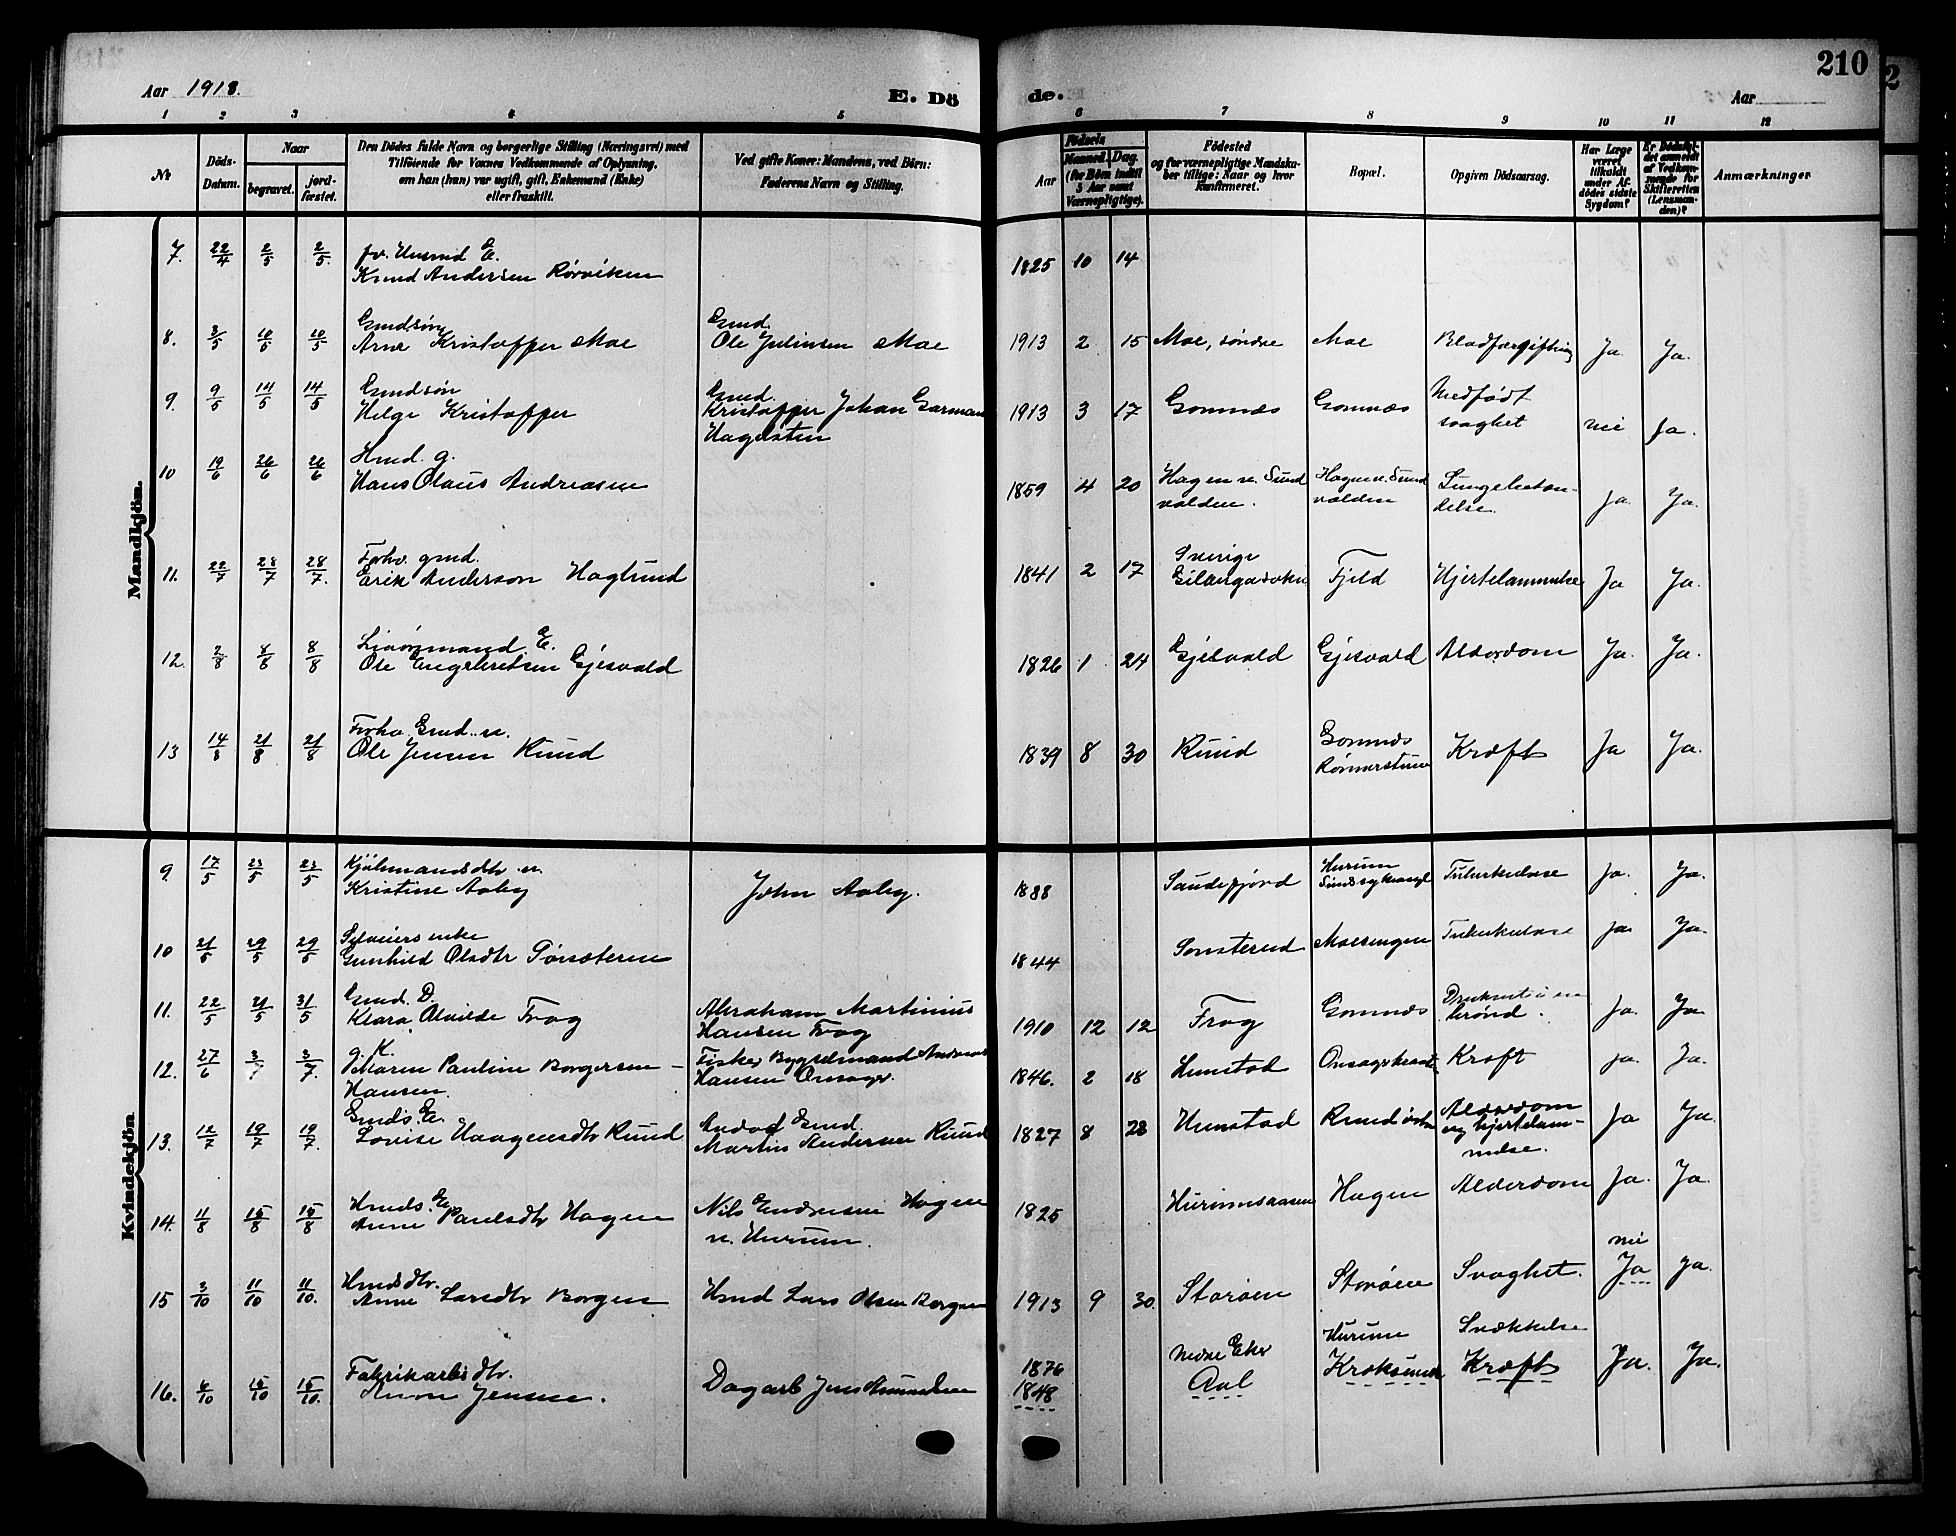 210
2
Aar 1913.
E. Dö
de.
Aar
1 2 3 4 5
6 7 8 9 10 11 12
No
Döds-
Datum.
Naar
begravet.
jord-
fæstet.
Den Dödes fulde Navn og borgerlige Stilling (Næringsvei) med
Tilföiende for Voxnes Vedkommende af Oplysning,
om han (hun) var ugift, gift, Enkemand (Enke)
eller fraskilt.
Ved gifte Koner: Mandens, ved Börn:
Faderens Navn og Stilling.
Aar
Födsels
Maaned. Dag.
(for Börn indtil
5 Aar samt
Værnepligtige).
Födested
og for værnepligtige Mandska-
ber tillige: Naar og hvor
konfirmeret.
Bopæl.
Opgiven Dödsaarsag.
Har Læge
været
tilkaldt
under Af-
dödes sidste
Sygdom?
Er Dödsfal-
det anmeldt
af Vedkom-
mende for
Skifteretten
(Lensman-
den)?
Anmærkninger
Mandkjön.
7. 22/4 2/5 2/5. E.
Knud Andersen Rørviken 1825 10 14
8. 3/5 10/5 10/5 Gmdsøn
Arne Kristoffer Moe Gmd.
Ole Juliusen Moe 1913 2 15 Moe, søndre Moe Blodforgiftning Ja. Ja.
9. 9/5 14/5 14/5 Gmdsøn
Helge Kristoffer Gmd.
Kristoffer Johan Garman
Hagelsten 1913 3 17 Gomnæs Gomnæs Medfødt
svaghet nei Ja.
10 19/6 26/6 26/6 Hmd. g.
Hans Olaus Andreasen 1859 4 20 Hagen n. Sund
volden. Hagen n. Sund
volden Lungebetæn-
delse. Ja. Ja.
11. 22/7 28/7 28/7. Forhv. gmd.
Erik Anderson Hoglund 1841 2 17 Sverige
Fjeld Hjertelammelse Ja Ja.
12. 2/8 8/8 8/8 E.
Ole Engebretsen Gjesvald 1826 1 24 Gjesvald Gjesvald Alderdom Ja. Ja.
13 14/8 21/8 21/8 Forhv. Gmd. u.
Ole Jensen Ruud 1839 8 30 Ruud Gomnæs
Kræft Ja Ja.
Kvindekjön
9. 17/5 23/5 23/5 u.
Kristine Aaby John Aaby. 1888 Sandefjord Hurum
Tuberkulose Ja. Ja.
10 21/5 29/5 29/5 enke
Gunhild Olsdtr 1844 Sonsterud Moesengen Tuberkulose Ja. Ja.
11. 22/5 21/5 31/5 Gmd. D.
Klara Olvilde Frog Abraham Martinius
Hansen Frog 1910 12 12 Frog Gomnæs Druknet i en
brønd. Ja. Ja.
12. 27/6 3/7 3/7. g. K.
Maren Pauline Borgersen -
Hansen. Fisker Bygselmand Andreas
Hansen Onsager. 1846. 2 18 Kræft Ja. Ja.
13. 12/7 19/7 19/7. Gmds. E.
Lovise Haagensdtr Ruud Gmd.
Martin Andersen Ruud 1827 8 28 Hunstad Ruud østre Alderdom
og hjertelam-
melse. Ja Ja.
14. 11/8 15/8 15/8 Hmds. E.
Anne Paulsdtr Hagen Nils Endresen Hagen
n. Hurum. 1825 Hurumsaasen Hagen Alderdom Ja. Ja.
15 3/10 11/10 11/10. Hmdsdtr.
Anne Larsdtr Borgen Hmd Lars Olsen Borgen 1913 9 30. Storøen Storøen Svaghet. nei
Ja Ja.
16. 6/10 15/10 15/10. Fabrikarb.dtr.
Anna Jensen. Dagarb Jens Amundsen 1876
1848 nedre Eker
Aal Hurum
Kroksund Svækkelse
Kræft Ja. Ja.